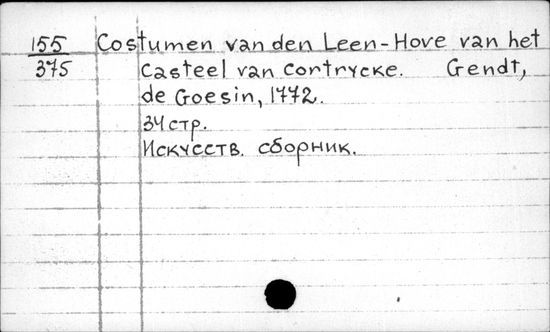 155 Costumen van den Leen-Hove van het
375 Casteel van Cortrycke. Gendt,
de Goesin, 1772.
34 стр.
Искусств. сборник.